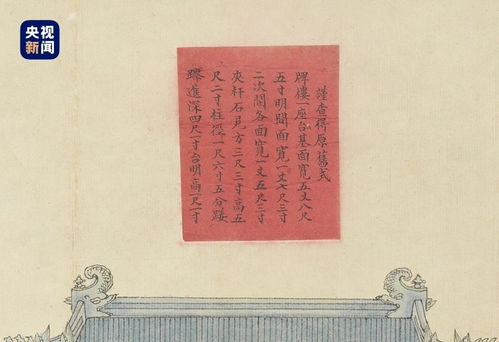 央视
新闻
謹查得原舊式
牌樓一座台基面寬五丈八尺
五寸明間面寬一丈七尺三寸
二次間各面寬一丈五尺三寸
夾杆石見方三尺三寸高五
尺二寸柱徑一尺六寸五分踏
跺進深四尺一寸台明高一尺一寸